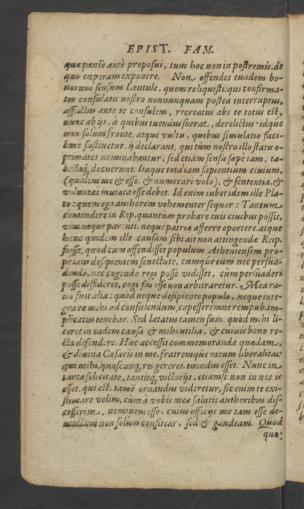 EPIST. FAM.
quæ paulo antè proposui, tum hoc non in postremis, de
quo cœperam exponere. Non offendes eundem bo-
norum sensum Lentule, quem reliquisti: qui confirma-
tus consulatu nostro nonnunquam postea interruptus,
afflictus ante te consulem, recreatus abs te totus est,
nunc ab ijs, à quibus tuendus fuerat, derelictus: idque
non solum fronte, atque vultu, quibus simulatio faci-
lime sustinetur, declarant, qui tùm nostro illo statu o-
ptimates nominabantur, sed etiam sensu sæpe iam, ta-
bellaq́, docuerunt. Itaque tota iam sapientium ciuium,
(qualem me & esse, & numerari volo), & sententia, &
voluntas mutata esse debet. Id enim iubet idem ille Pla-
to: quem ego authorem vehementer sequor: Tantum
contendere in Rep. quantum probare tuis ciuibus possis,
vim neque parenti, neque patriæ afferre oportere. atque
hanc quidem ille causam sibi ait non attingendæ Reip.
fuisse, quod cum offendisset populum Atheniensem pro-
pe iam desipientem senectute, cumque eum nec persua-
dendo, nec cogendo regi posse vidisset, cum persuaderi
posse diffideret, cogi fas esse non arbitraretur. Mea ra-
tio fuit alia: quod neque desipiente populo, neque inte-
gra re mihi ad consulendum, capesseremne rempub. im-
plicatus tenebar. Sed lætatus tamen sum, quod mihi li-
ceret in eadem causa & mihi vtilia, & cuiuis bono re-
cta defendere. Huc accessit commemoranda quædam,
& diuina Cæsaris in me, fratremque meum liberalitas:
qui mihi, quascunq, res gereret, tuendus esset. Nunc in
tanta felicitate, tantisq́, victorijs, etiamsi non in nos is
esset, qui est, tamē ornandus videretur, sic enim te exi-
stimare velim, cum à vobis meæ salutis authoribus dis-
cesserim, neminem esse, cuius officijs me tam esse de-
uinctum non solum confitear, sed & gaudeam. Quod
quo-